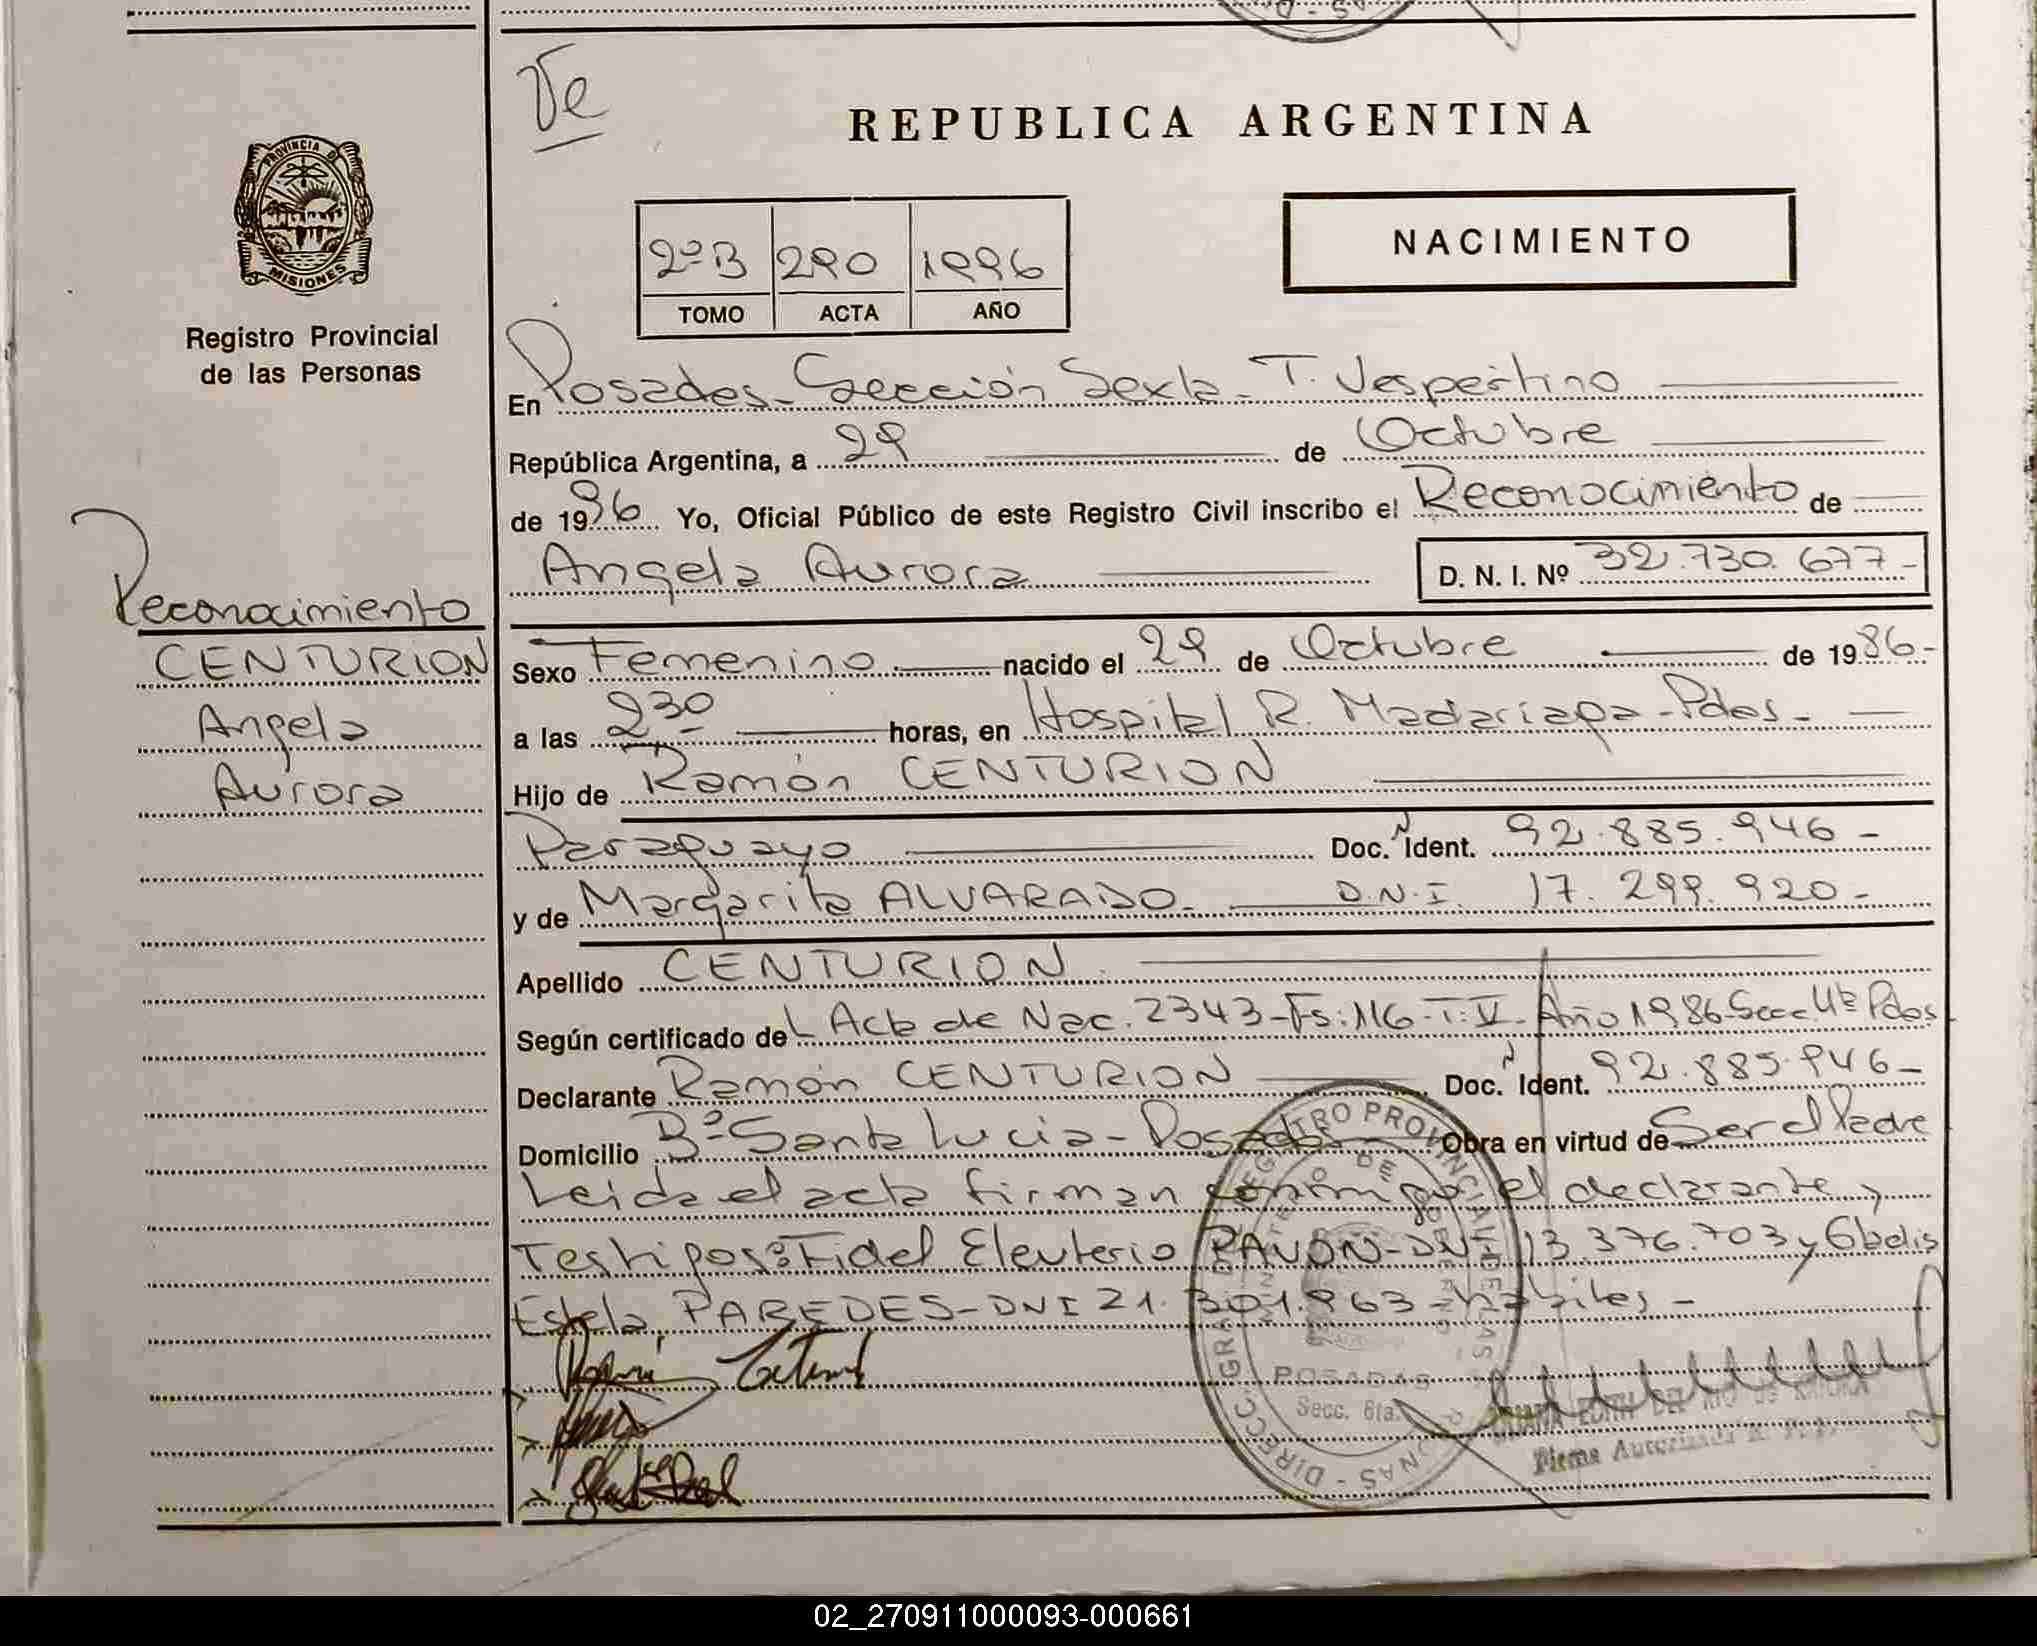 Ve
REPUBLICA ARGENTINA
PROVINCIA DE
MISIONES
2º B 290 1996
TOMO ACTA AÑO
NACIMIENTO
Registro Provincial
de las Personas
En Posadas - Sección Sexta - T. Vespertino
República Argentina, a 29 de Octubre
de 1996 Yo, Oficial Público de este Registro Civil inscribo el Reconocimiento de
Angela Aurora D. N. I. Nº 32.730.677-
Reconocimiento
CENTURION
Angela
Aurora
Sexo Femenino nacido el 29 de Octubre de 1986-
a las 230 horas, en Hospital R. Madariaga - Pdas -
Hijo de Ramón CENTURION
Paraguayo Doc. N Ident. 92.885.946 -
y de Margarita ALVARADO - D.N.I. 17.299.920 -
Apellido CENTURION
Según certificado de L Acta de Nac. 2343 - Fs: 116 - T: V - Año 1986 Secc 4ta Pdas
Declarante Ramón CENTURION Doc. N Ident. 92.885.946 -
Domicilio Bº Santa Lucia - Posadas Obra en virtud de Ser el Padre
Leida el acta firman conmigo el declarante y
Testigos: Fidel Eleuterio PAVON - DNI 13.376.703 y Gladis
Estela PAREDES - DNI 21.301.963 - hábiles -
POSADAS
Secc. 6ta.
Firma Autorizada
02_270911000093-000661